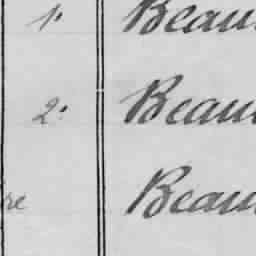 1. Beau
2. Beau
re Beau